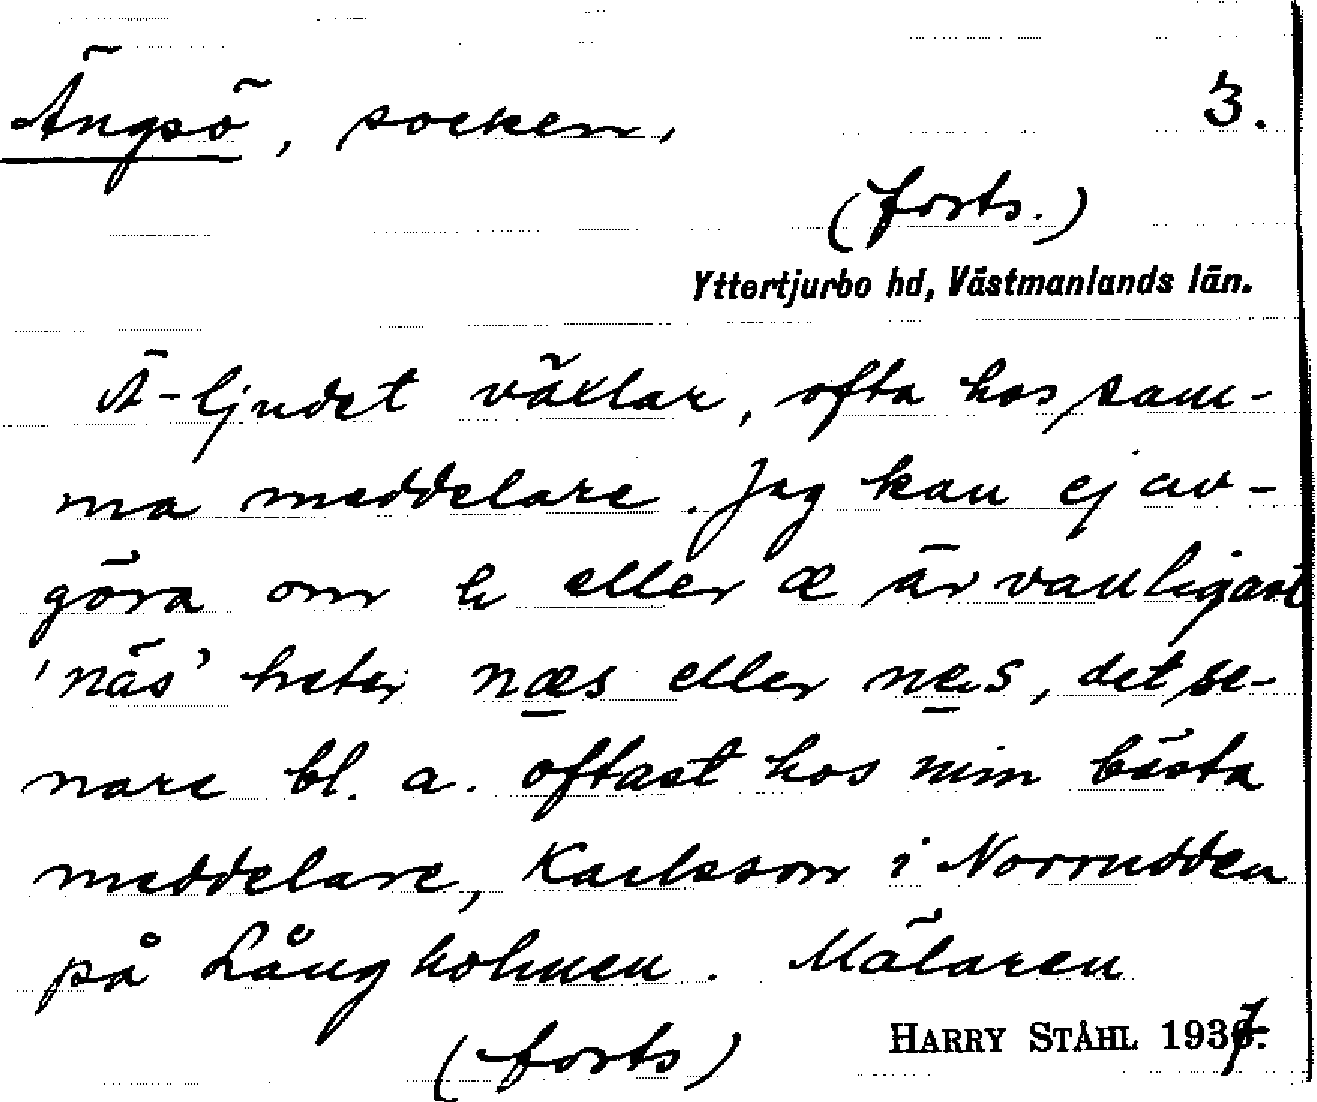 Ängsö, socken, 3.
(forts.)
Yttertjurbo hd, Västmanlands län.
Ä-ljudet växlar, ofta hos sam-
ma meddelare. Jag kan ej av-
göra om e eller æ är vanligast
'näs' heter næs eller nes, det se-
nare bl. a. oftast hos min bästa
meddelare, Karlsson i Norrudden
på Långholmen. Mälaren
(forts)
HARRY STÅHL 1937.